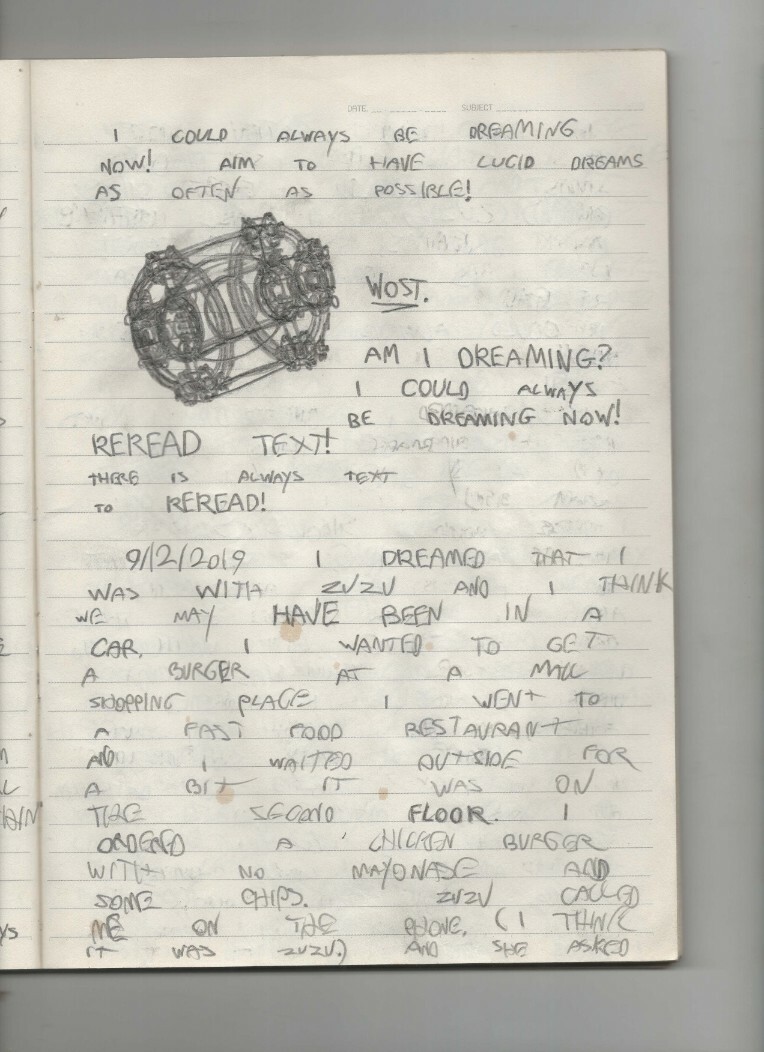 DATE SUBJECT
I COULD ALWAYS BE DREAMING
NOW! AIM TO HAVE LUCID DREAMS
AS OFTEN AS POSSIBLE!
WOST.
AM I DREAMING?
I COULD ALWAYS
BE DREAMING NOW!
REREAD TEXT!
THERE IS ALWAYS TEXT
TO REREAD!
9/12/2019 I DREAMED THAT I
WAS WITH ZUZU AND I THINK
WE MAY HAVE BEEN IN A
CAR. I WANTED TO GET
A BURGER AT A MALL
SHOPPING PLACE I WENT TO
A FAST FOOD RESTAURANT
AND I WAITED OUTSIDE FOR
A BIT IT WAS ON
THE SECOND FLOOR. I
ORDERED A CHICKEN BURGER
WITH NO MAYONASE AND
SOME CHIPS. ZUZU CALLED
ME ON THE PHONE, (I THINK
IT WAS ZUZU.) AND SHE ASKED